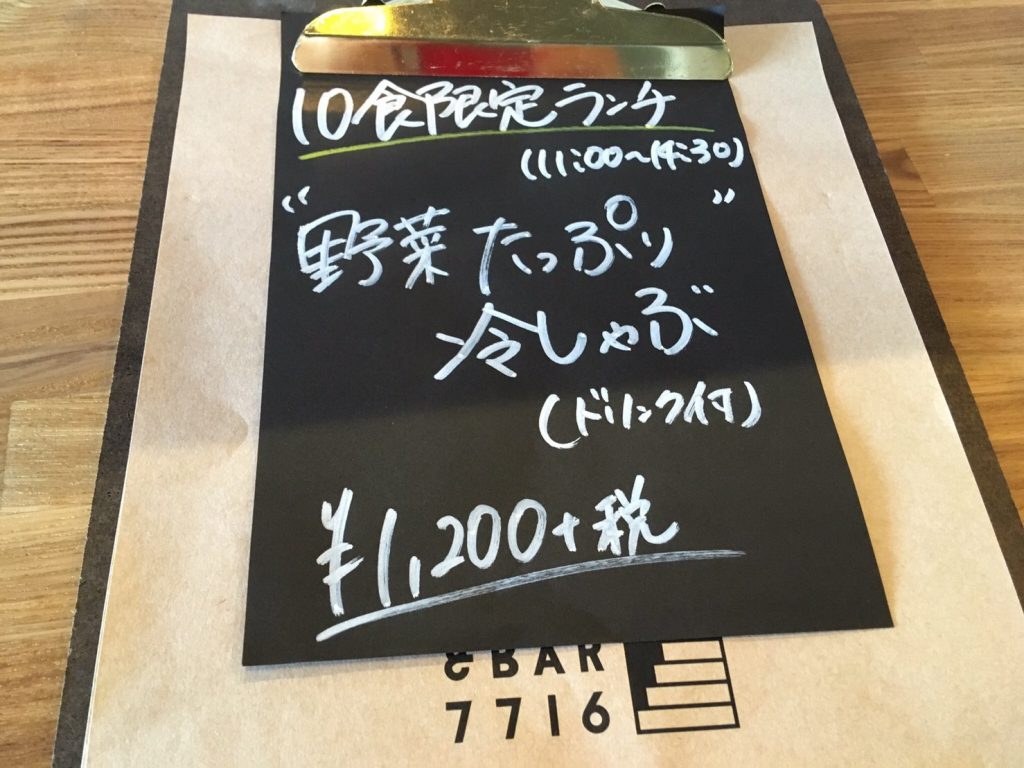 10食限定ランチ
(11:00~14:30)
"野菜たっぷり"
冷しゃぶ
(ドリンク付)
¥1,200+税
&BAR
7716